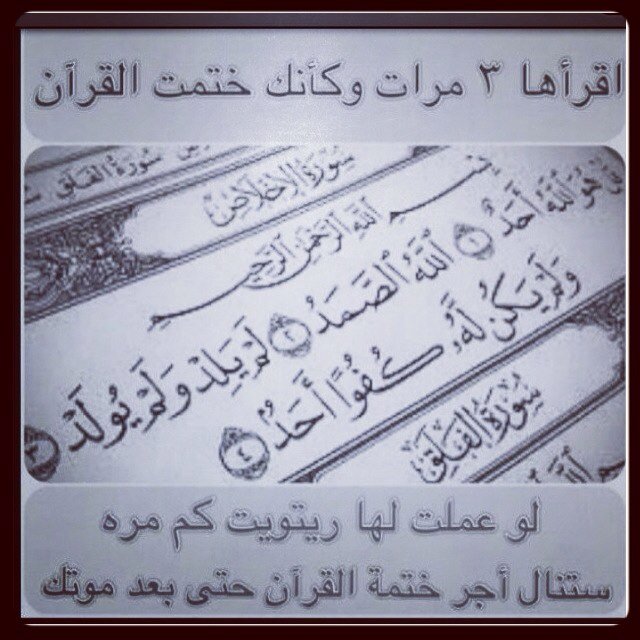 اقرأها ٣ مرات وكأنك ختمت القرآن
سُورَةُ الفَلَق
سُورَةُ الإِخْلَاصِ
بِسْمِ اللَّهِ الرَّحْمَنِ الرَّحِيمِ
هُوَ اللَّهُ أَحَدٌ ١ اللَّهُ الصَّمَدُ ٢ لَمْ يَلِدْ وَلَمْ يُولَدْ ٣
وَلَمْ يَكُن لَّهُ كُفُوًا أَحَدٌ ٤
سُورَةُ الفَلَقِ
لو عملت لها ريتويت كم مره
ستنال أجر ختمة القرآن حتى بعد موتك